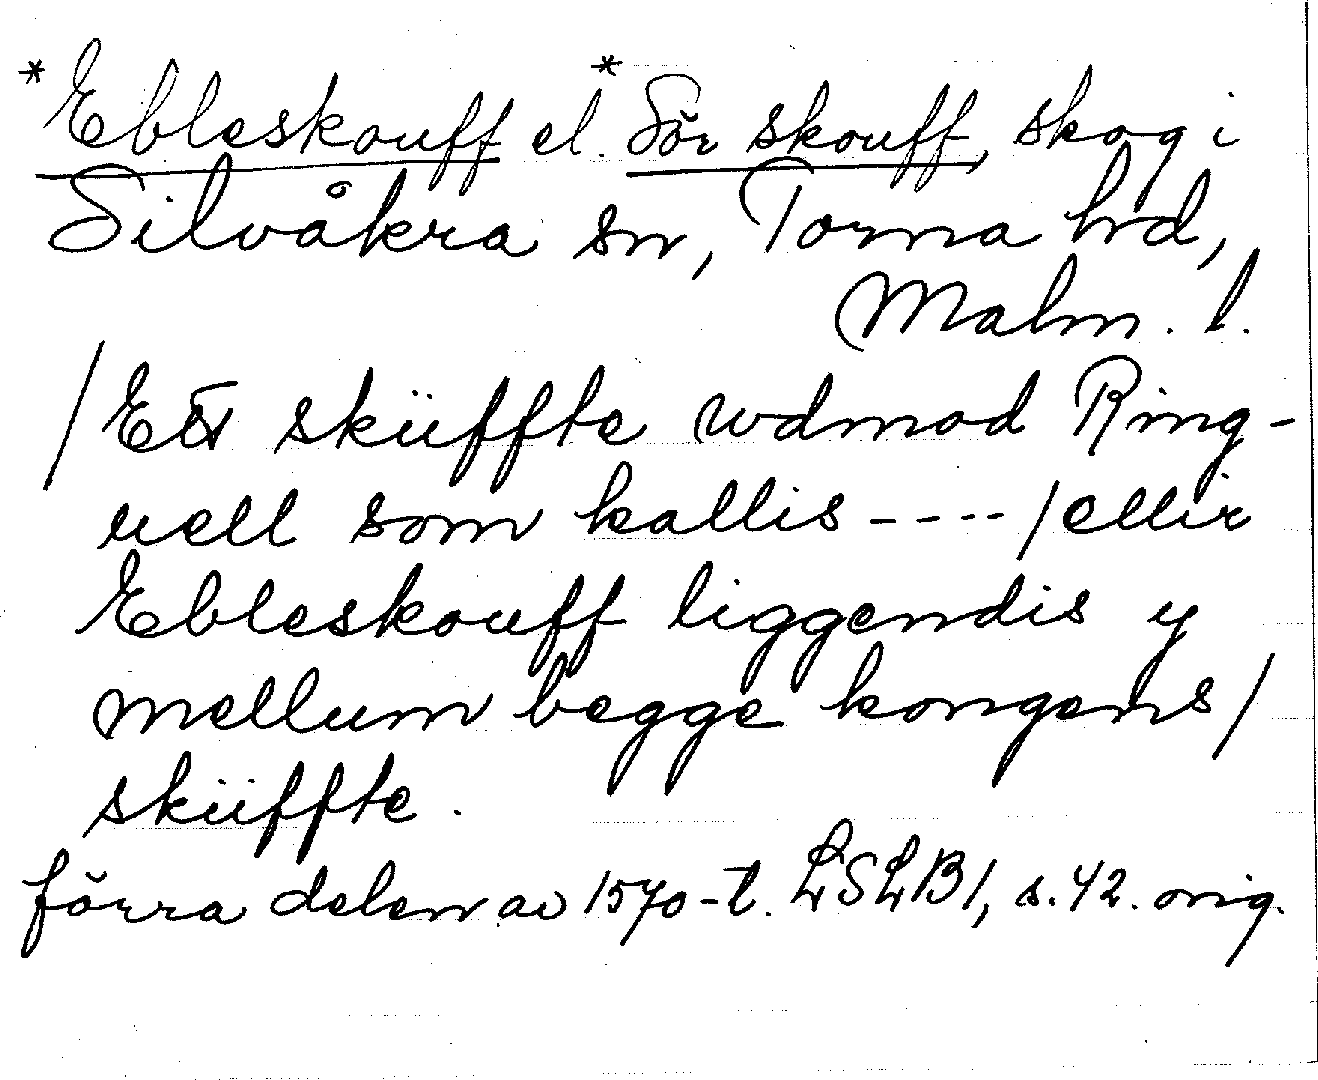 *Ebleskouff el. *Sör skouff, skog i
Silvåkra sn, Torna hd,
Malm. l.
/Ett sküffte wdmod Ring-
uell som kallis ---- /ellir
Ebleskouff liggendis y
mellum begge kongens/
sküffte.
förra delen av 1570-t. LSLB1, s. 42. orig.